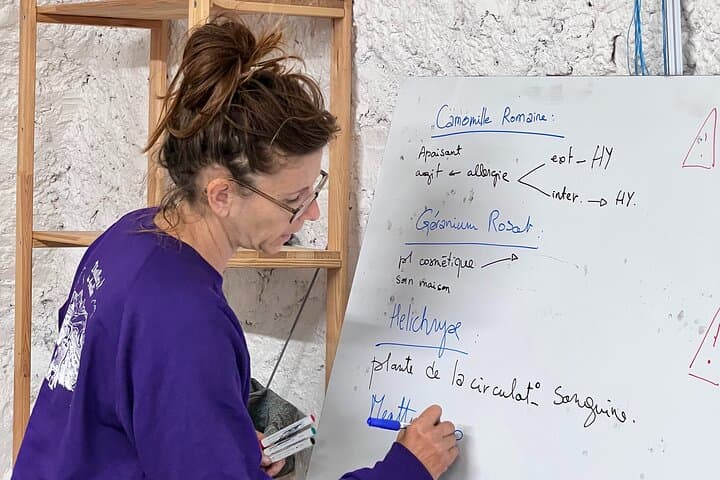 Camomille Romaine :
Apaisant
agit ← allergie
ext - HY
inter. → HY.
Géranium Rosat :
pl cosmétique
soin maison
Hélichryse :
plante de la circulat° sanguine.